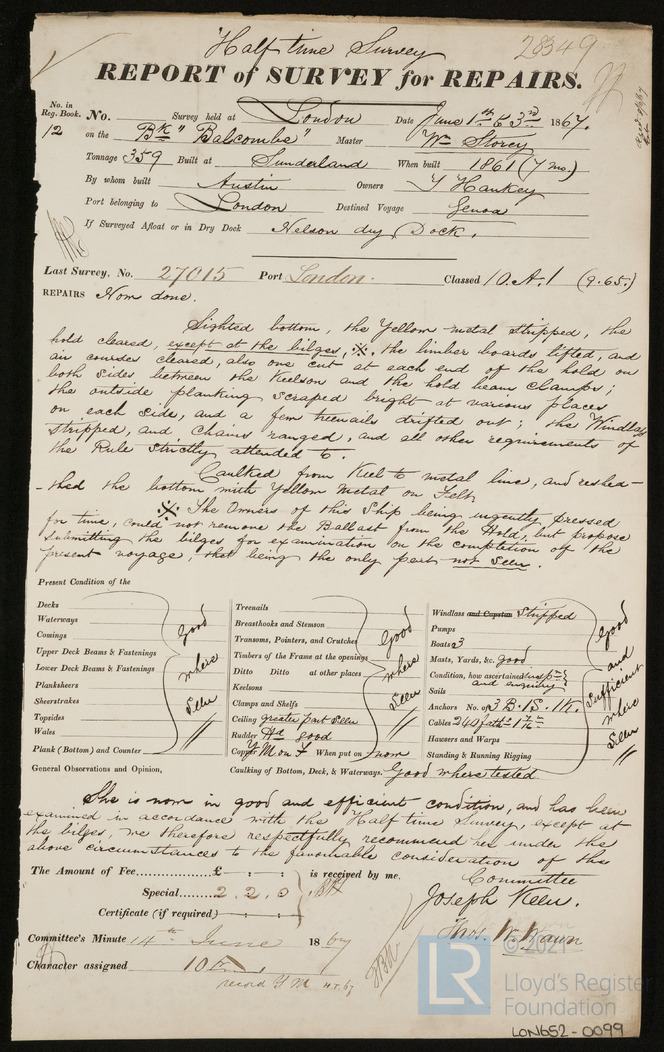 Half time Survey 28349
REPORT of SURVEY for REPAIRS.
No. in Reg. Book. No. Survey held at London Date June 1st & 3rd 1867.
12 on the Bk "Balcombe" Master Wm Storey
Tonnage 359 Built at Sunderland When built 1861 (7 mo.)
By whom built Austin Owners T Hankey
Port belonging to London Destined Voyage Genoa
If Surveyed Afloat or in Dry Dock Nelson dry Dock.
Last Survey, No. 27015 Port London. Classed 10.A.1 (9.65.)
REPAIRS Now done.
Sighted bottom, the Yellow metal stripped, the
hold cleared, except at the bilges, ※. the limber boards lifted, and
air courses cleared, also one cut at each end of the hold on
both sides between the Keelson and the hold beam clamps;
the outside planking scraped bright at various places
on each side, and a few treenails drifted out; the Windlass
stripped, and chains ranged, and all other requirements of
the Rule strictly attended to.
Caulked from Keel to metal line, and reshea-
-thed the bottom with Yellow Metal on Felt
※ The Owners of this Ship being urgently pressed
for time, could not remove the Ballast from the Hold, but propose
submitting the bilges for examination on the completion of the
present voyage, that being the only part not seen.
Present Condition of the
Decks
Waterways
Comings
Upper Deck Beams & Fastenings
Lower Deck Beams & Fastenings
Planksheers
Sheerstrakes
Topsides
Wales
Plank (Bottom) and Counter
Good where seen "
Treenails
Breasthooks and Stemson
Transoms, Pointers, and Crutches
Timbers of the Frame at the openings
Ditto Ditto at other places
Keelsons
Clamps and Shelfs
Ceiling greater part seen
Rudder Hd good
Copper Y M on F When put on now
Good where seen "
Windlass and Capstan Stripped
Pumps
Boats 3
Masts, Yards, &c. good
Condition, how ascertained
and enquiry
Sails
Anchors No. of 3 B. 1S. 1K.
Cables 240 fath
Hawsers and Warps
Standing & Running Rigging
Good and sufficient where seen "
General Observations and Opinion, Caulking of Bottom, Deck, & Waterways Good where tested
She is now in good and efficient condition, and has been
examined in accordance with the Half time Survey, except at
the bilges, we therefore respectfully recommend her under the
above circumstances to the favourable consideration of the
Committee
The Amount of Fee £ is received by me.
Special 2.2.0
Certificate (if required)
Joseph Keen.
Thos. W. Wawn
Committee's Minute 14th June 1867
Character assigned 10 A 1
record Y M H.T. 67
© 2021
LR
Lloyd's Register
Foundation
LON652-0099